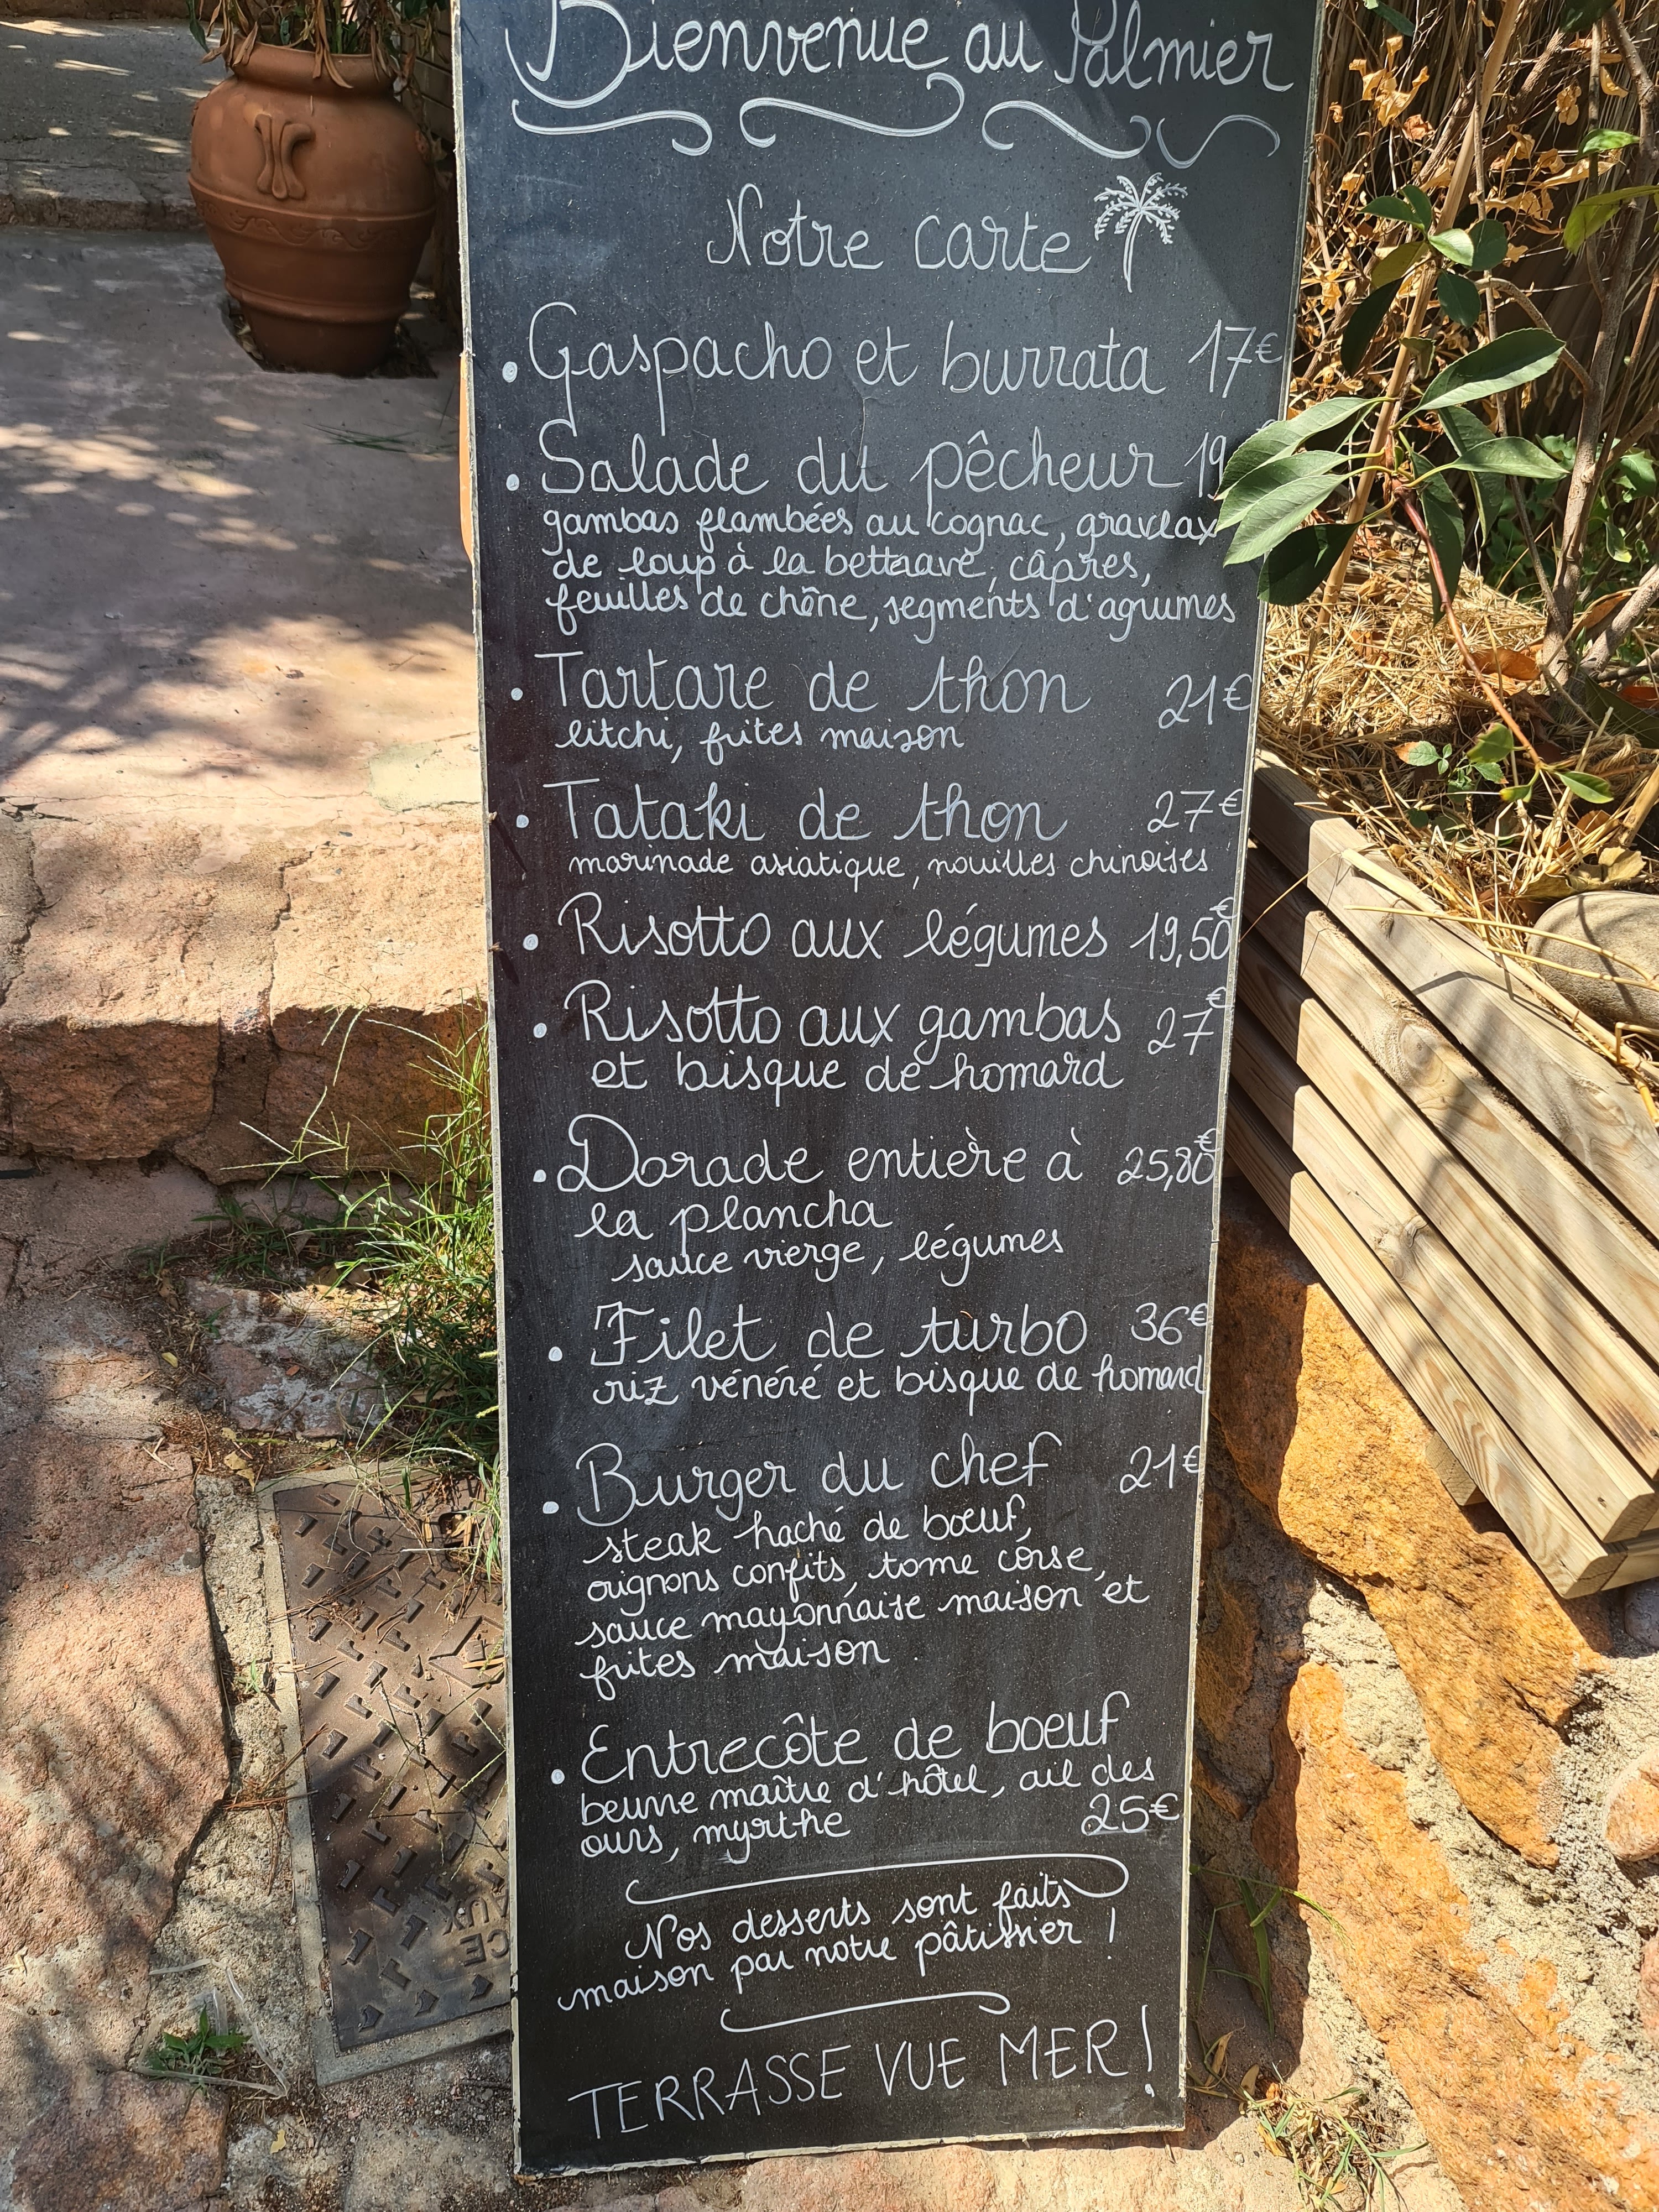 Bienvenue au Palmier
Notre carte
. Gaspacho et burrata 17€
. Salade du pêcheur 19
gambas flambées au cognac, gravlax
de loup à la bettrave, câpres,
feuilles de chêne, segments d'agrumes
. Tartare de thon 21€
litchi, frites maison
. Tataki de thon 27€
marinade asiatique, nouilles chinoises
. Risotto aux légumes 19,50€
. Risotto aux gambas 27€
et bisque de homard
. Dorade entière à 25,80€
la plancha
sauce vierge, légumes
. Filet de turbo 36€
riz vénéré et bisque de homard
. Burger du chef 21€
steak haché de bœuf,
oignons confits, tome corse,
sauce mayonnaise maison et
frites maison
. Entrecôte de boeuf
beurre maître d'hôtel, ail des
ours, myrthe 25€
Nos desserts sont faits
maison par notre pâtissier !
TERRASSE VUE MER !